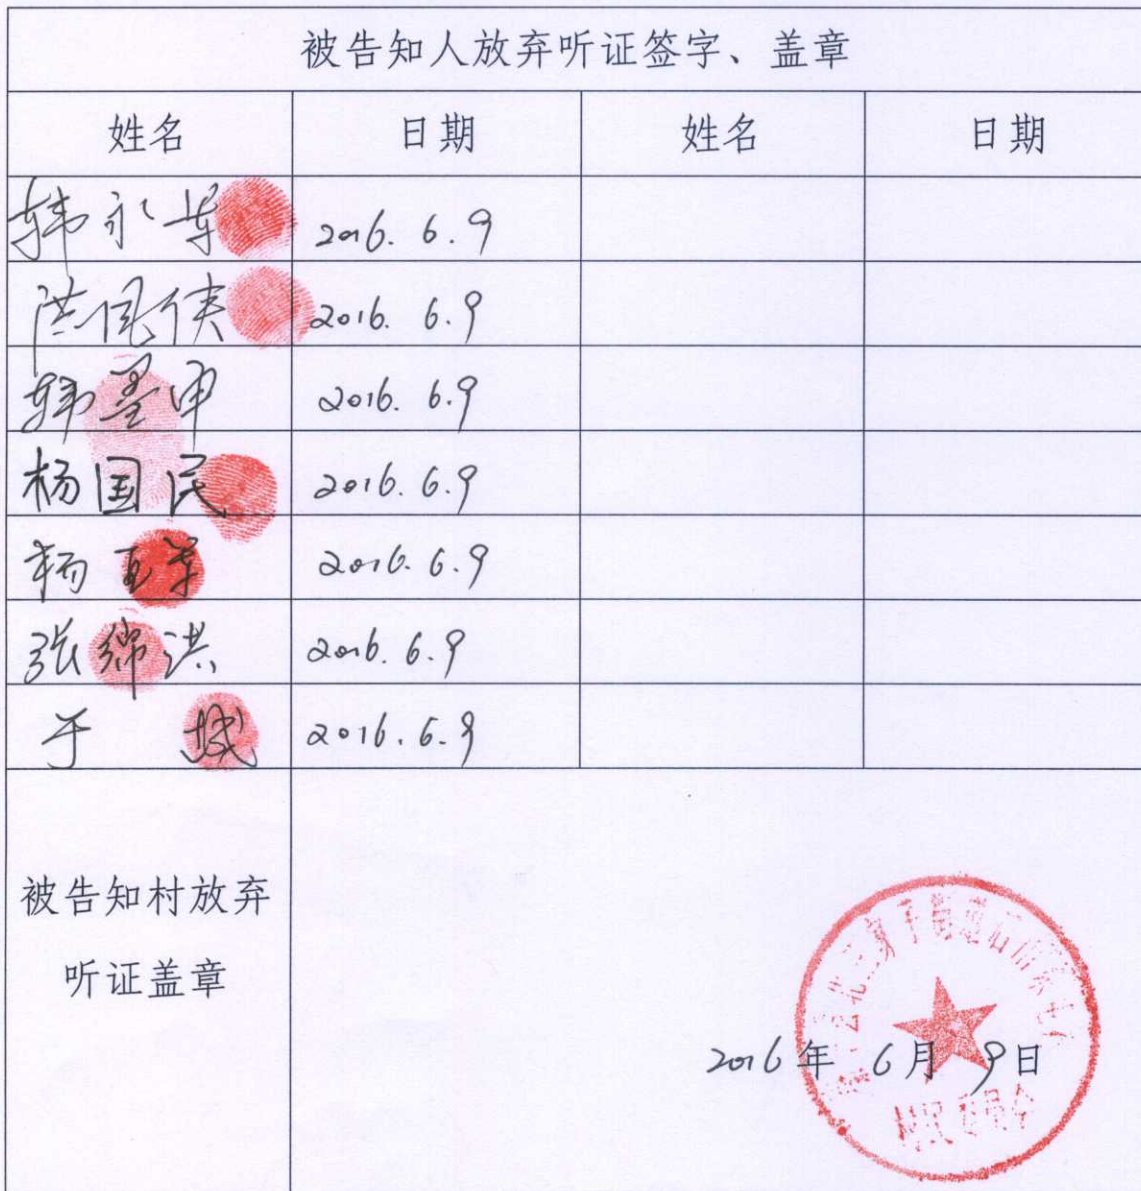 被告知人放弃听证签字、盖章
姓名 日期 姓名 日期
韩永 2016. 6. 9
洪凤侠 2016. 6. 9
韩墨申 2016. 6.9
杨国民 2016. 6.9
杨玉 2016. 6.9
张绵洪 2016. 6.9
于 城 2016. 6. 9
被告知村放弃
听证盖章
2016年 6月 9日
村民委员会